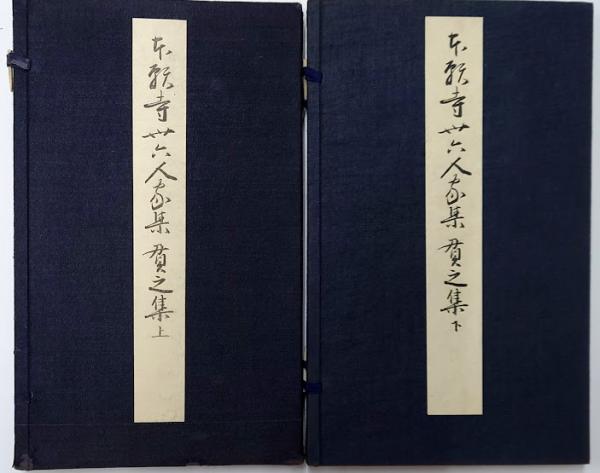 本願寺卅六人家集 貫之集 上
本願寺卅六人家集 貫之集 下